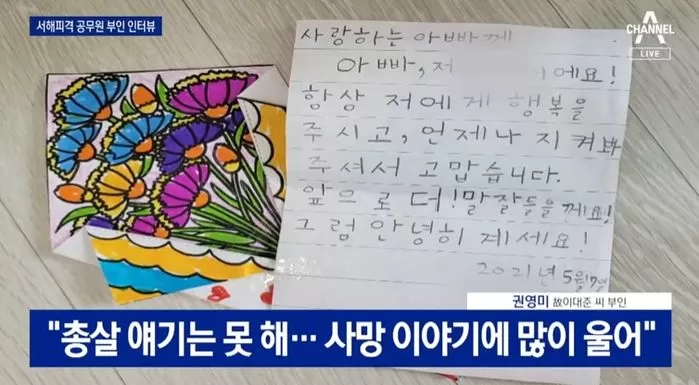 서해피격 공무원 부인 인터뷰
CHANNEL
LIVE
사랑하는 아빠께
아빠, 저 에요!
항상 저에게 행복을
주시고, 언제나 지켜봐
주셔서 고맙습니다.
앞으로 더! 말잘들을께요!
그럼 안녕히 계세요!
2021년 5월 7일
권영미 故이대준 씨 부인
"총살 얘기는 못 해… 사망 이야기에 많이 울어"